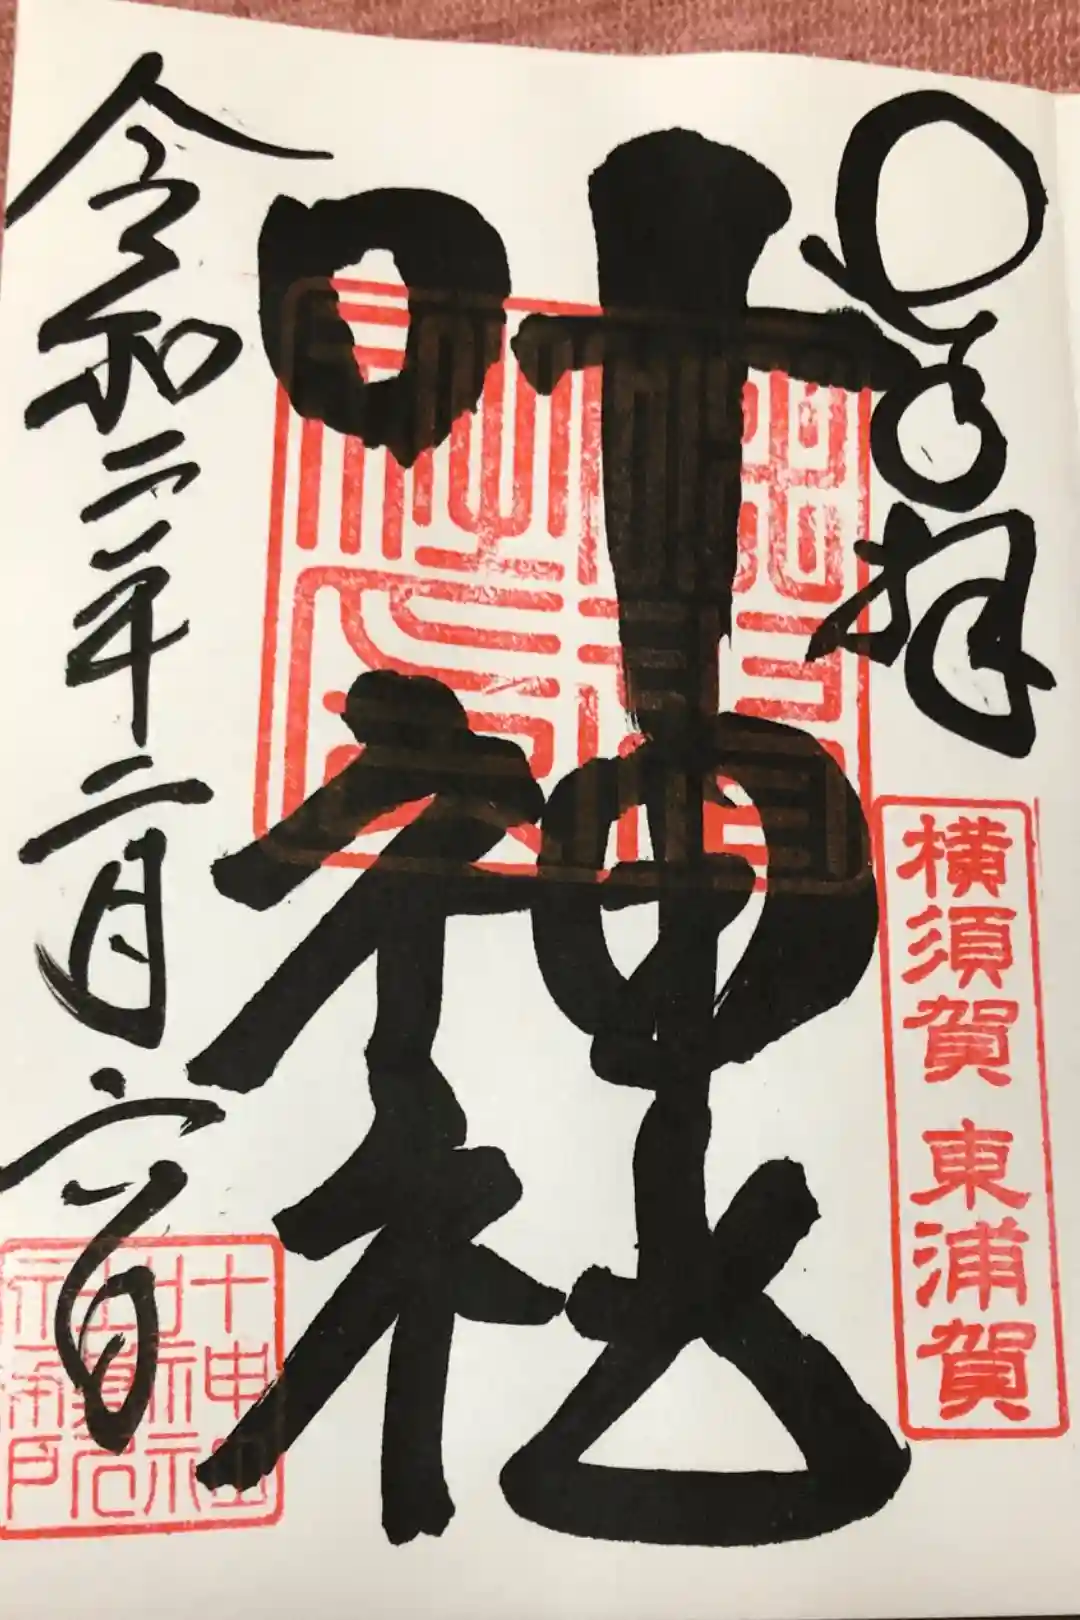 奉拝
横須賀 東浦賀
叶神社
令和二年二月六日